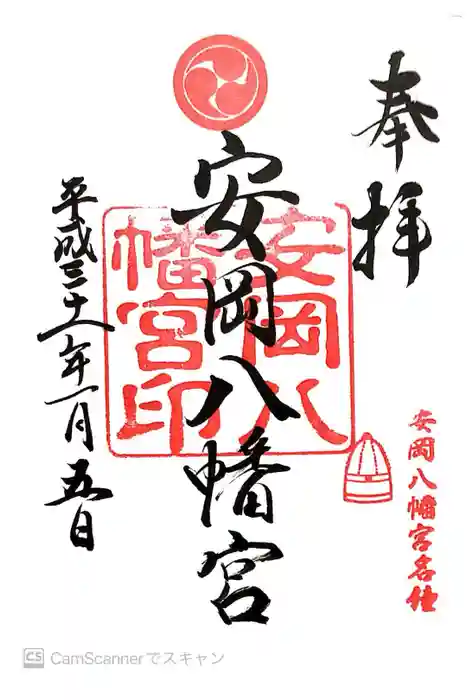 奉拝
安岡八幡宮名
安岡八
幡宮印
安岡八幡宮
平成三十一年一月五日
CS CamScannerでスキャン